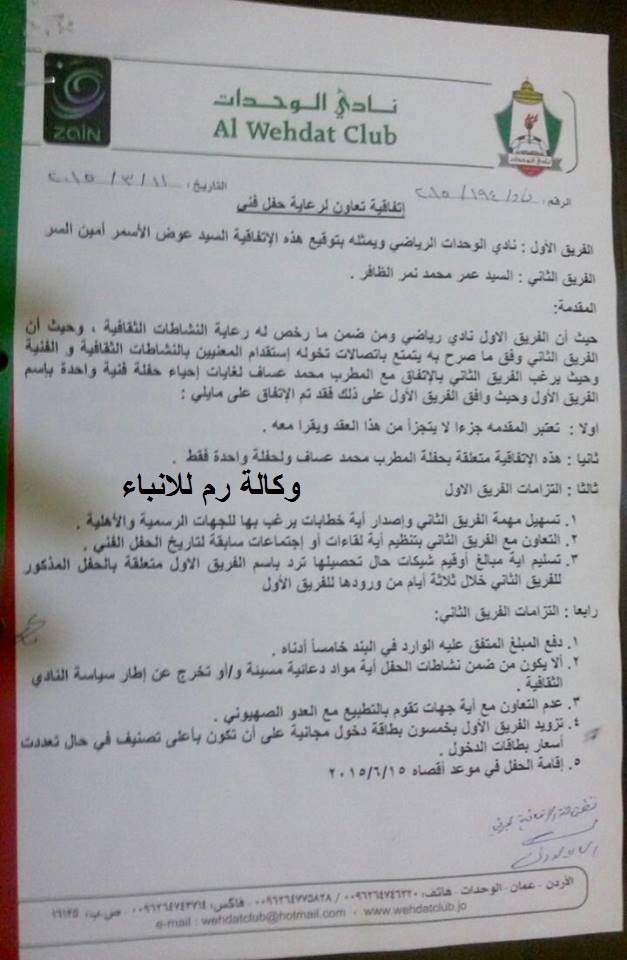 zain
نادي الوحدات
Al Wehdat Club
نادي الوحدات
الرقم: ن و/١٩٤/٢٠١٥
التاريخ: ١١/٣/٢٠١٥
إتفاقية تعاون لرعاية حفل فني
الفريق الأول : نادي الوحدات الرياضي ويمثله بتوقيع هذه الإتفاقية السيد عوض الأسمر أمين السر
الفريق الثاني : السيد عمر محمد نمر الظافر .
المقدمة:
حيث أن الفريق الاول نادي رياضي ومن ضمن ما رخص له رعاية النشاطات الثقافية ، وحيث أن
الفريق الثاني وفق ما صرح به يتمتع باتصالات تخوله إستقدام المعنيين بالنشاطات الثقافية و الفنية
وحيث يرغب الفريق الثاني بالإتفاق مع المطرب محمد عساف لغايات إحياء حفلة فنية واحدة بإسم
الفريق الأول وحيث وافق الفريق الأول على ذلك فقد تم الإتفاق على مايلي :
اولا : تعتبر المقدمه جزءا لا يتجزأ من هذا العقد ويقرا معه .
ثانيا : هذه الإتفاقية متعلقة بحفلة المطرب محمد عساف ولحفلة واحدة فقط .
ثالثا : التزامات الفريق الاول
وكالة رم للانباء
١. تسهيل مهمة الفريق الثاني وإصدار أية خطابات يرغب بها للجهات الرسمية والأهلية .
٢. التعاون مع الفريق الثاني بتنظيم أية لقاءات أو إجتماعات سابقة لتاريخ الحفل الفني .
٣. تسليم اية مبالغ أوقيم شيكات حال تحصيلها ترد باسم الفريق الاول متعلقة بالحفل المذكور
للفريق الثاني خلال ثلاثة أيام من ورودها للفريق الأول
رابعا : التزامات الفريق الثاني:
١. دفع المبلغ المتفق عليه الوارد في البند خامساً أدناه .
٢. ألا يكون من ضمن نشاطات الحفل أية مواد دعائية مسيئة و/أو تخرج عن إطار سياسة النادي
الثقافية .
٣. عدم التعاون مع أية جهات تقوم بالتطبيع مع العدو الصهيوني .
٤. تزويد الفريق الأول بخمسون بطاقة دخول مجانية على أن تكون بأعلى تصنيف في حال تعددت
أسعار بطاقات الدخول .
٥. إقامة الحفل في موعد أقصاه ٢٠١٥/٦/١٥
الأردن - عمان - الوحدات - هاتف: ٠٠٩٦٢٦٤٧٤٦٣٢٠ / ٠٠٩٦٢٦٤٧٧٥٨٢٨ - فاكس: ٠٠٩٦٢٦٤٧٤٣٧١٤ - ص.ب:
e-mail : wehdatclub@hotmail.com - www.wehdatclub.jo